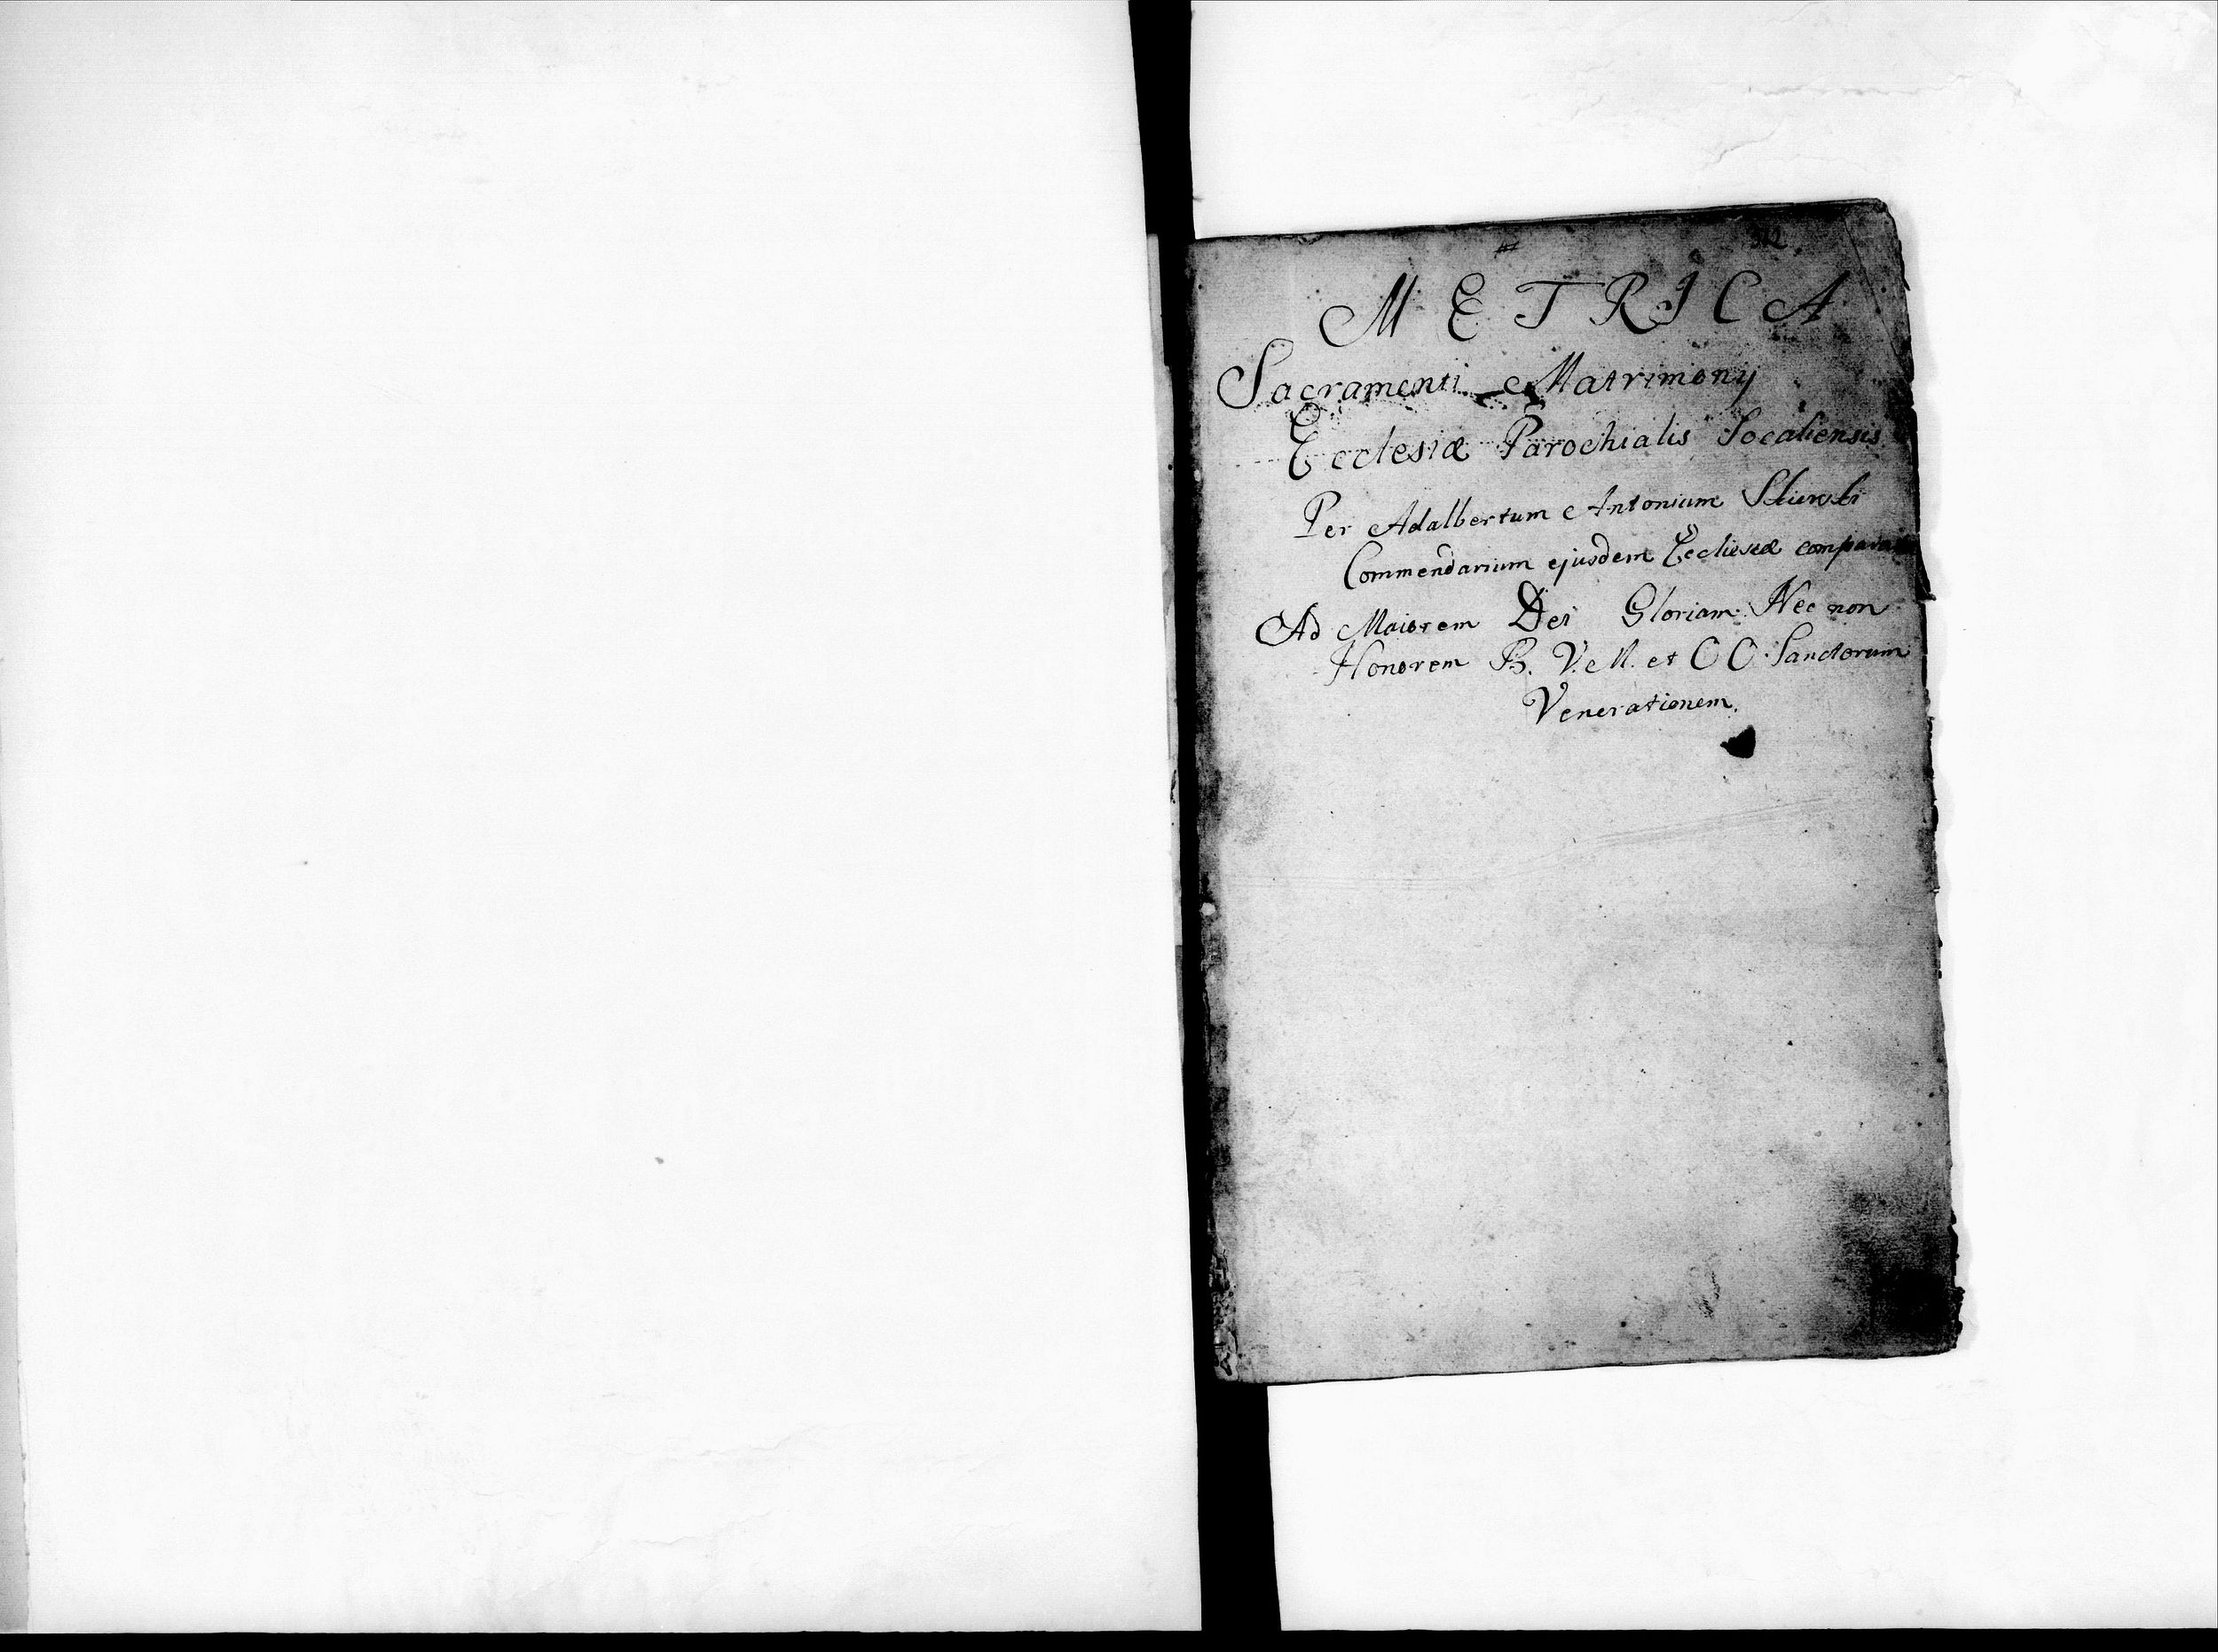 METRICA
Sacramenti Matrimonij
Ecclesiæ Parochialis Socaliensis
Per Adalbertum Antonium
Commendarium ejusdem Ecclesiæ
Ad Maiorem Dei Gloriam Nec non
Honorem B. V. M. et OO Sanctorum
Venerationem.